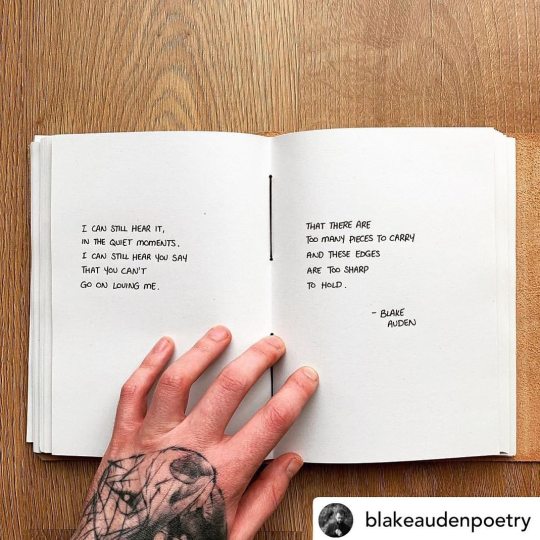 I CAN STILL HEAR IT,
IN THE QUIET MOMENTS.
I CAN STILL HEAR YOU SAY
THAT YOU CAN'T
GO ON LOVING ME.
THAT THERE ARE
TOO MANY PIECES TO CARRY
AND THESE EDGES
ARE TOO SHARP
TO HOLD.
- BLAKE
AUDEN
blakeaudenpoetry